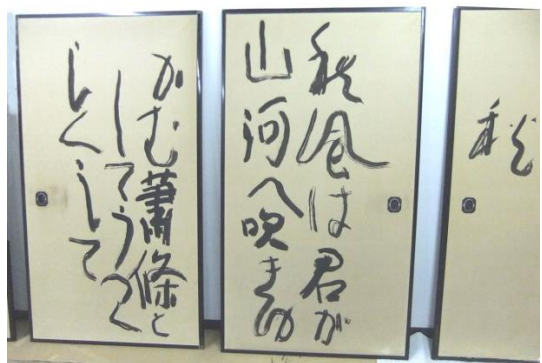 秋
秋風は君が
山河へ吹きゆ
かむ蕭條と
してうつく
しくして